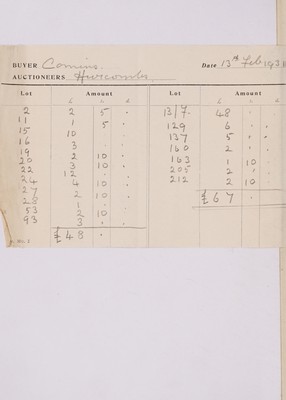 BUYER Comins. Date 13th Feb 193
AUCTIONEERS Hiscombs
Lot Amount
£ s d
2 2 5 .
11 1 5 .
15 10
16 3 .
19 2 10
20 3 10 .
22 12 .
24 4 10 .
27 2 10
28 1 .
53 2 10
93 3 .
£ 48 .
Lot Amount
£ s d
B/F. 48 .
129 6 . .
137 5 . .
160 2 .
163 1 10
205 2 .
212 2 10 .
£ 67 .